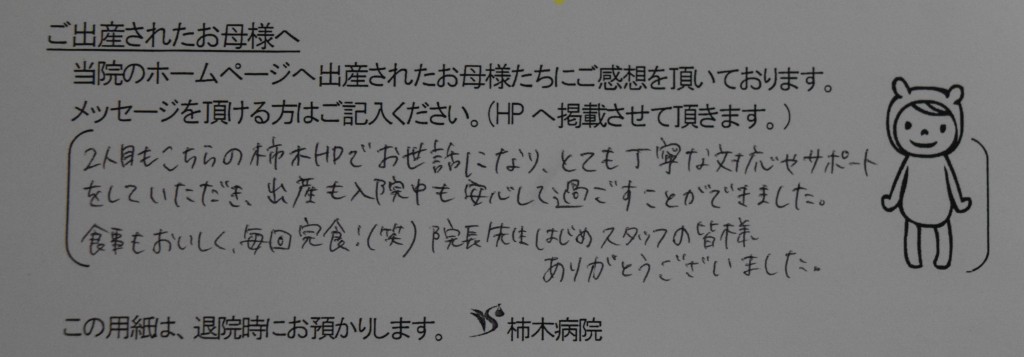 ご出産されたお母様へ
当院のホームページへ出産されたお母様たちにご感想を頂いております。
メッセージを頂ける方はご記入ください。(HP へ掲載させて頂きます。)
2人目もこちらの柿木HPでお世話になり、とても丁寧な対応やサポート
をしていただき、出産も入院中も安心して過ごすことができました。
食事もおいしく、毎回完食!(笑) 院長先生はじめスタッフの皆様
ありがとうございました。
この用紙は、退院時にお預かりします。 柿木病院